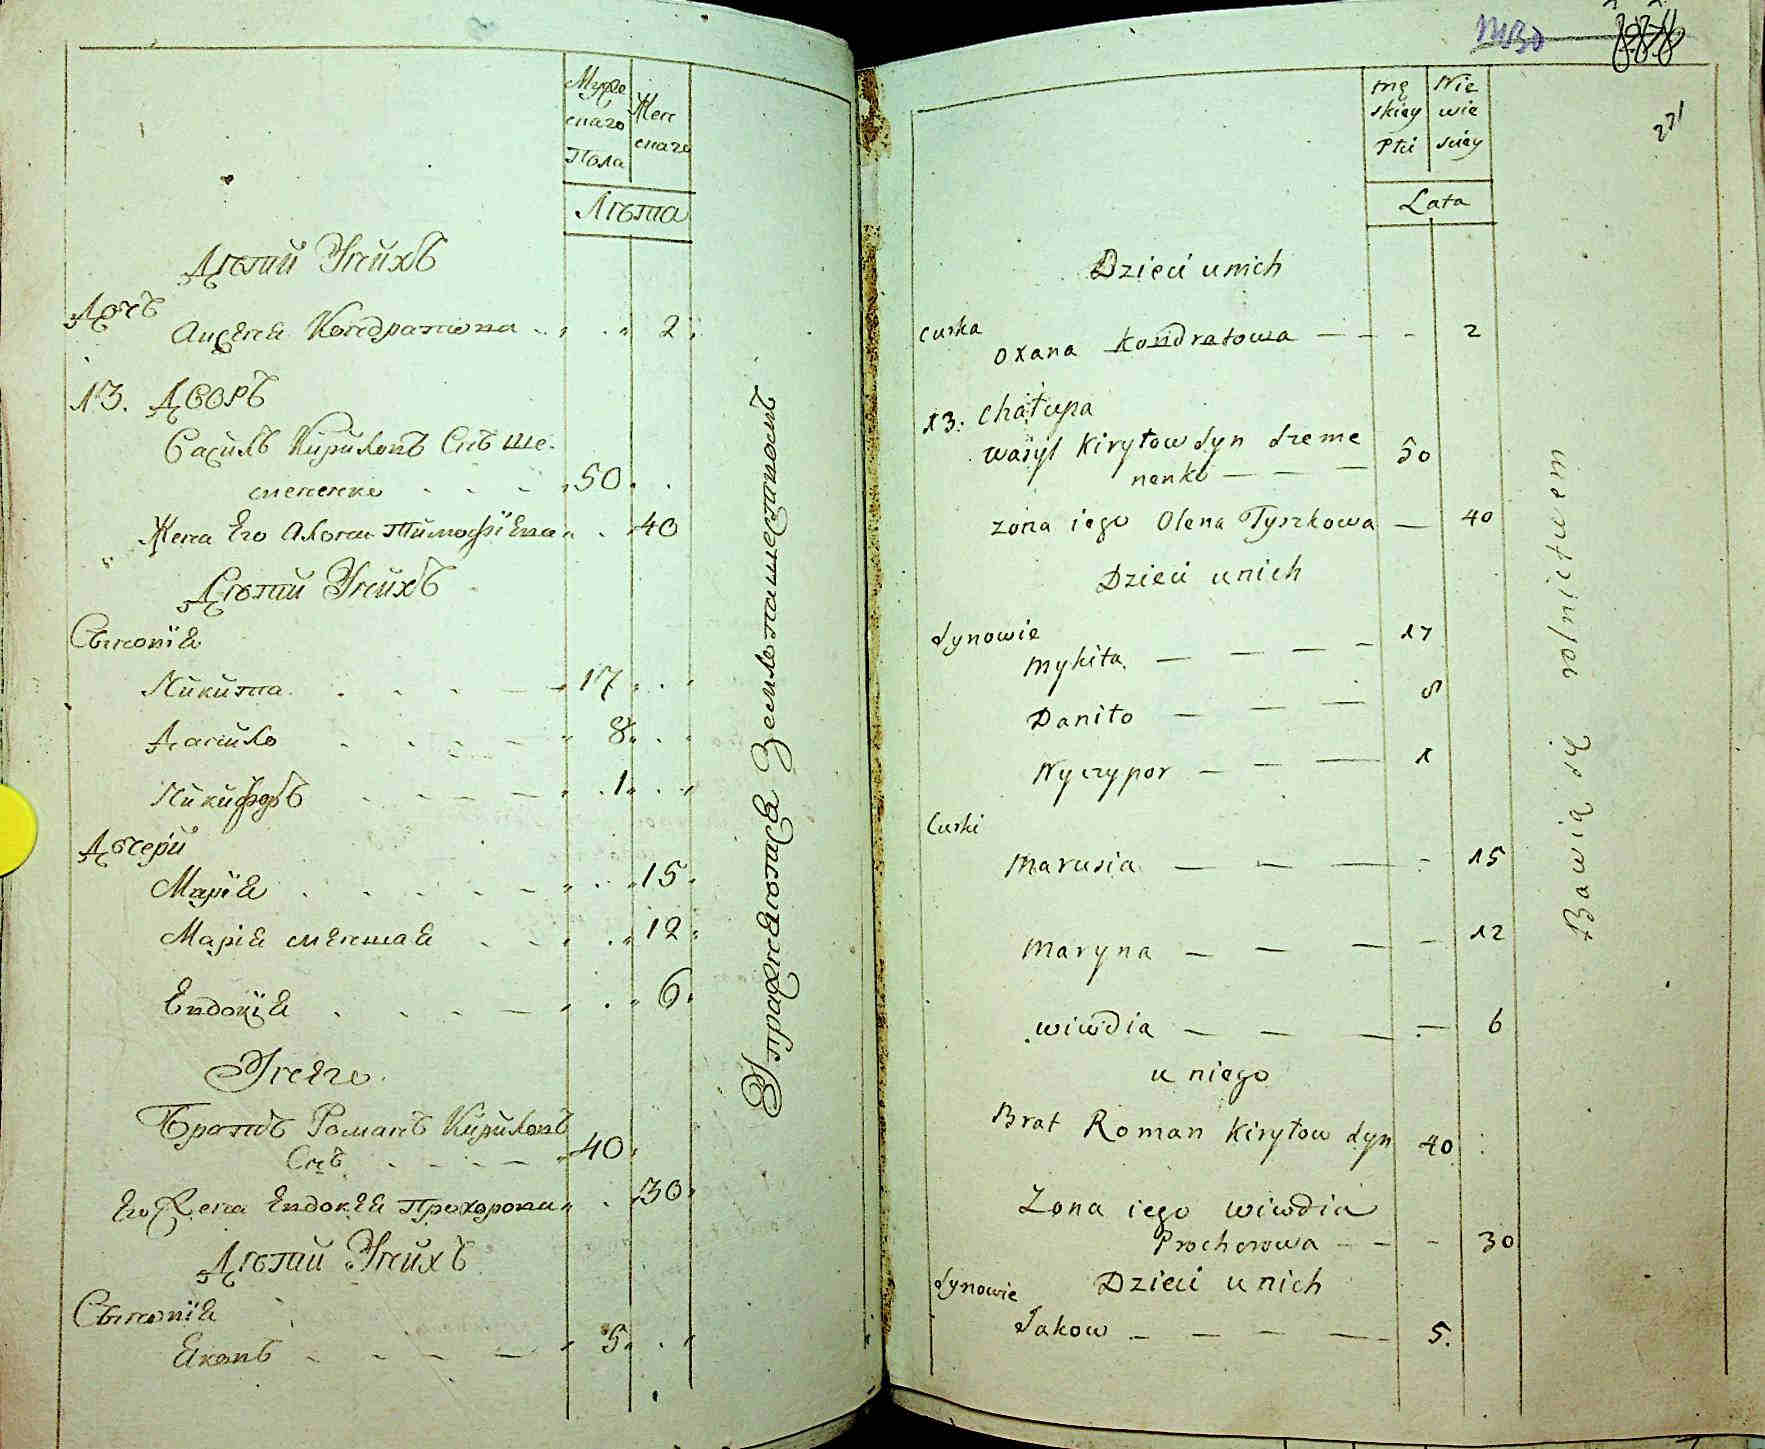 Муже
скаго
Пола
Жен
скаго
Лѣта
Дѣтий Унихъ
Дочъ
Аксеня Кондратова 2
13. Дворъ
Василъ Кириловъ Снъ Ше-
мененко 50
Жена Его Алена Тимофіева 40
Дѣтий Унихъ
Сыновія
Никита 17
Данило 8
Никифоръ 1
Дочери
Марія 15
Марія меншая 12
Евдокія 6
Унего
Братъ Романъ Кириловъ
Снъ 40
Его Жена Евдокея Прохорова 30
Дѣтий Унихъ
Сыновія
Яковъ 5
Упражняются Землепашествомъ
mę
skiey
Płci
Nie
wie
sciey
Lata
271
Dzieci unich
curka
Oxana Kondratowa 2
13. Chałupa
Wasyl Kiryłow Syn Szeme
nenko 50
Zona iego Olena Tyszkowa 40
Dzieci unich
Synowie
Mykita 17
Daniło 8
Nyczypor 1
Curki
Marusia 15
Maryna 12
Wiwdia 6
u niego
Brat Roman Kiryłow Syn 40
Zona iego Wiwdia
Prochorowa 30
Synowie Dzieci u nich
Jakow 5.
Bawią się rolnictwem